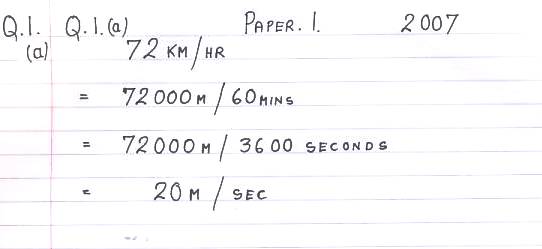 Q.1. Q.1.(a) PAPER.1. 2007
(a)
72 KM/HR
= 72000M / 60MINS
= 72000M / 3600 SECONDS
= 20M / SEC